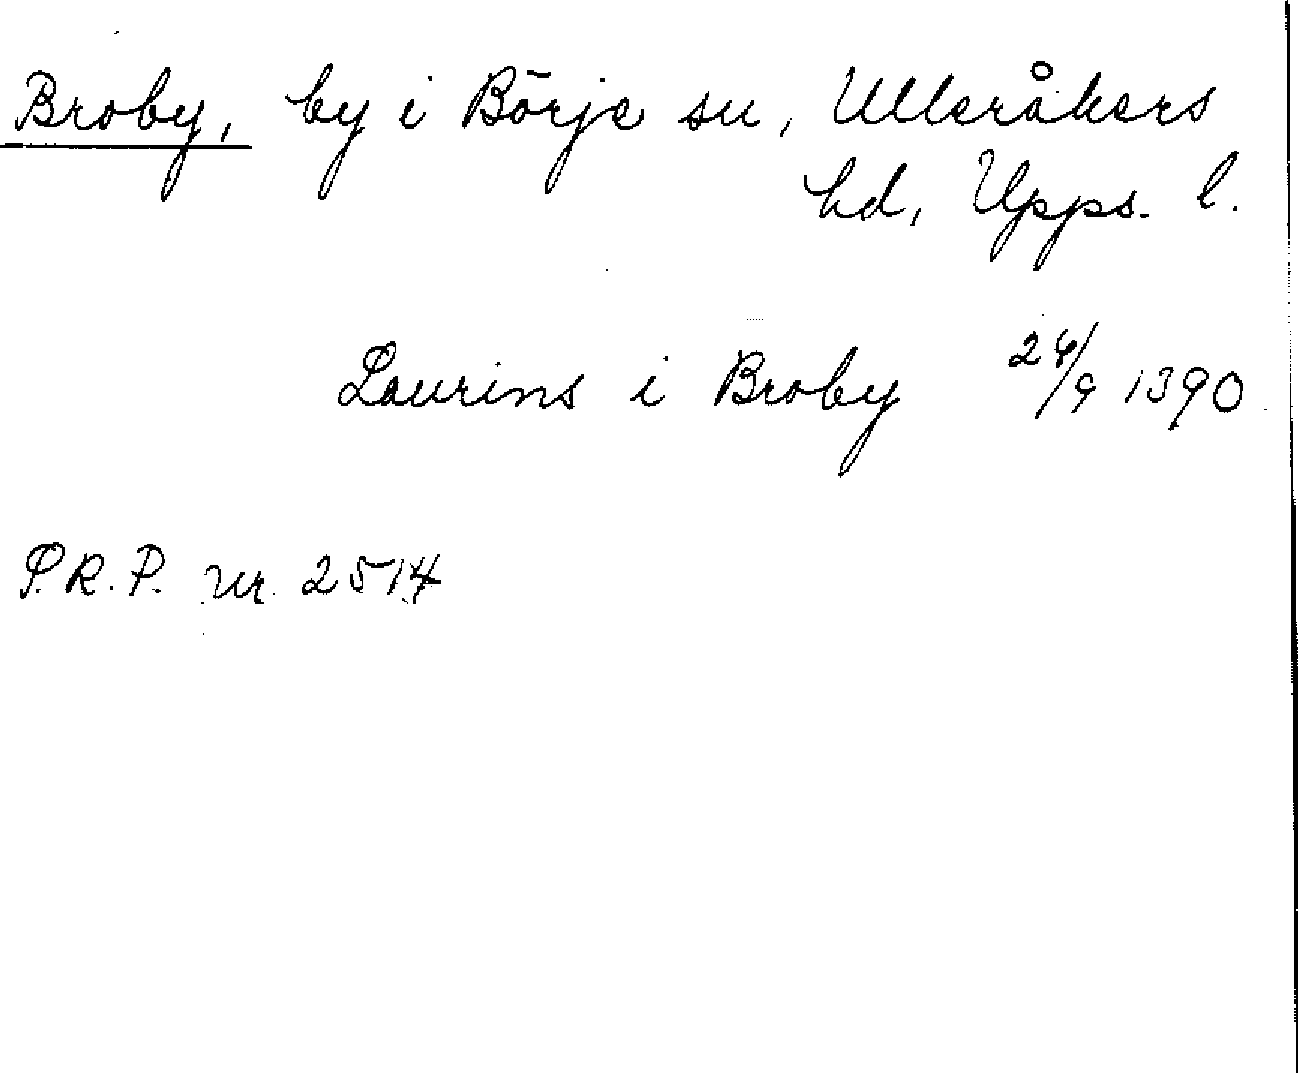 Broby, by i Börje sn, Ulleråkers
hd, Upps. l.
Laurins i Broby 24/9 1390
P.R.P. nr. 2514